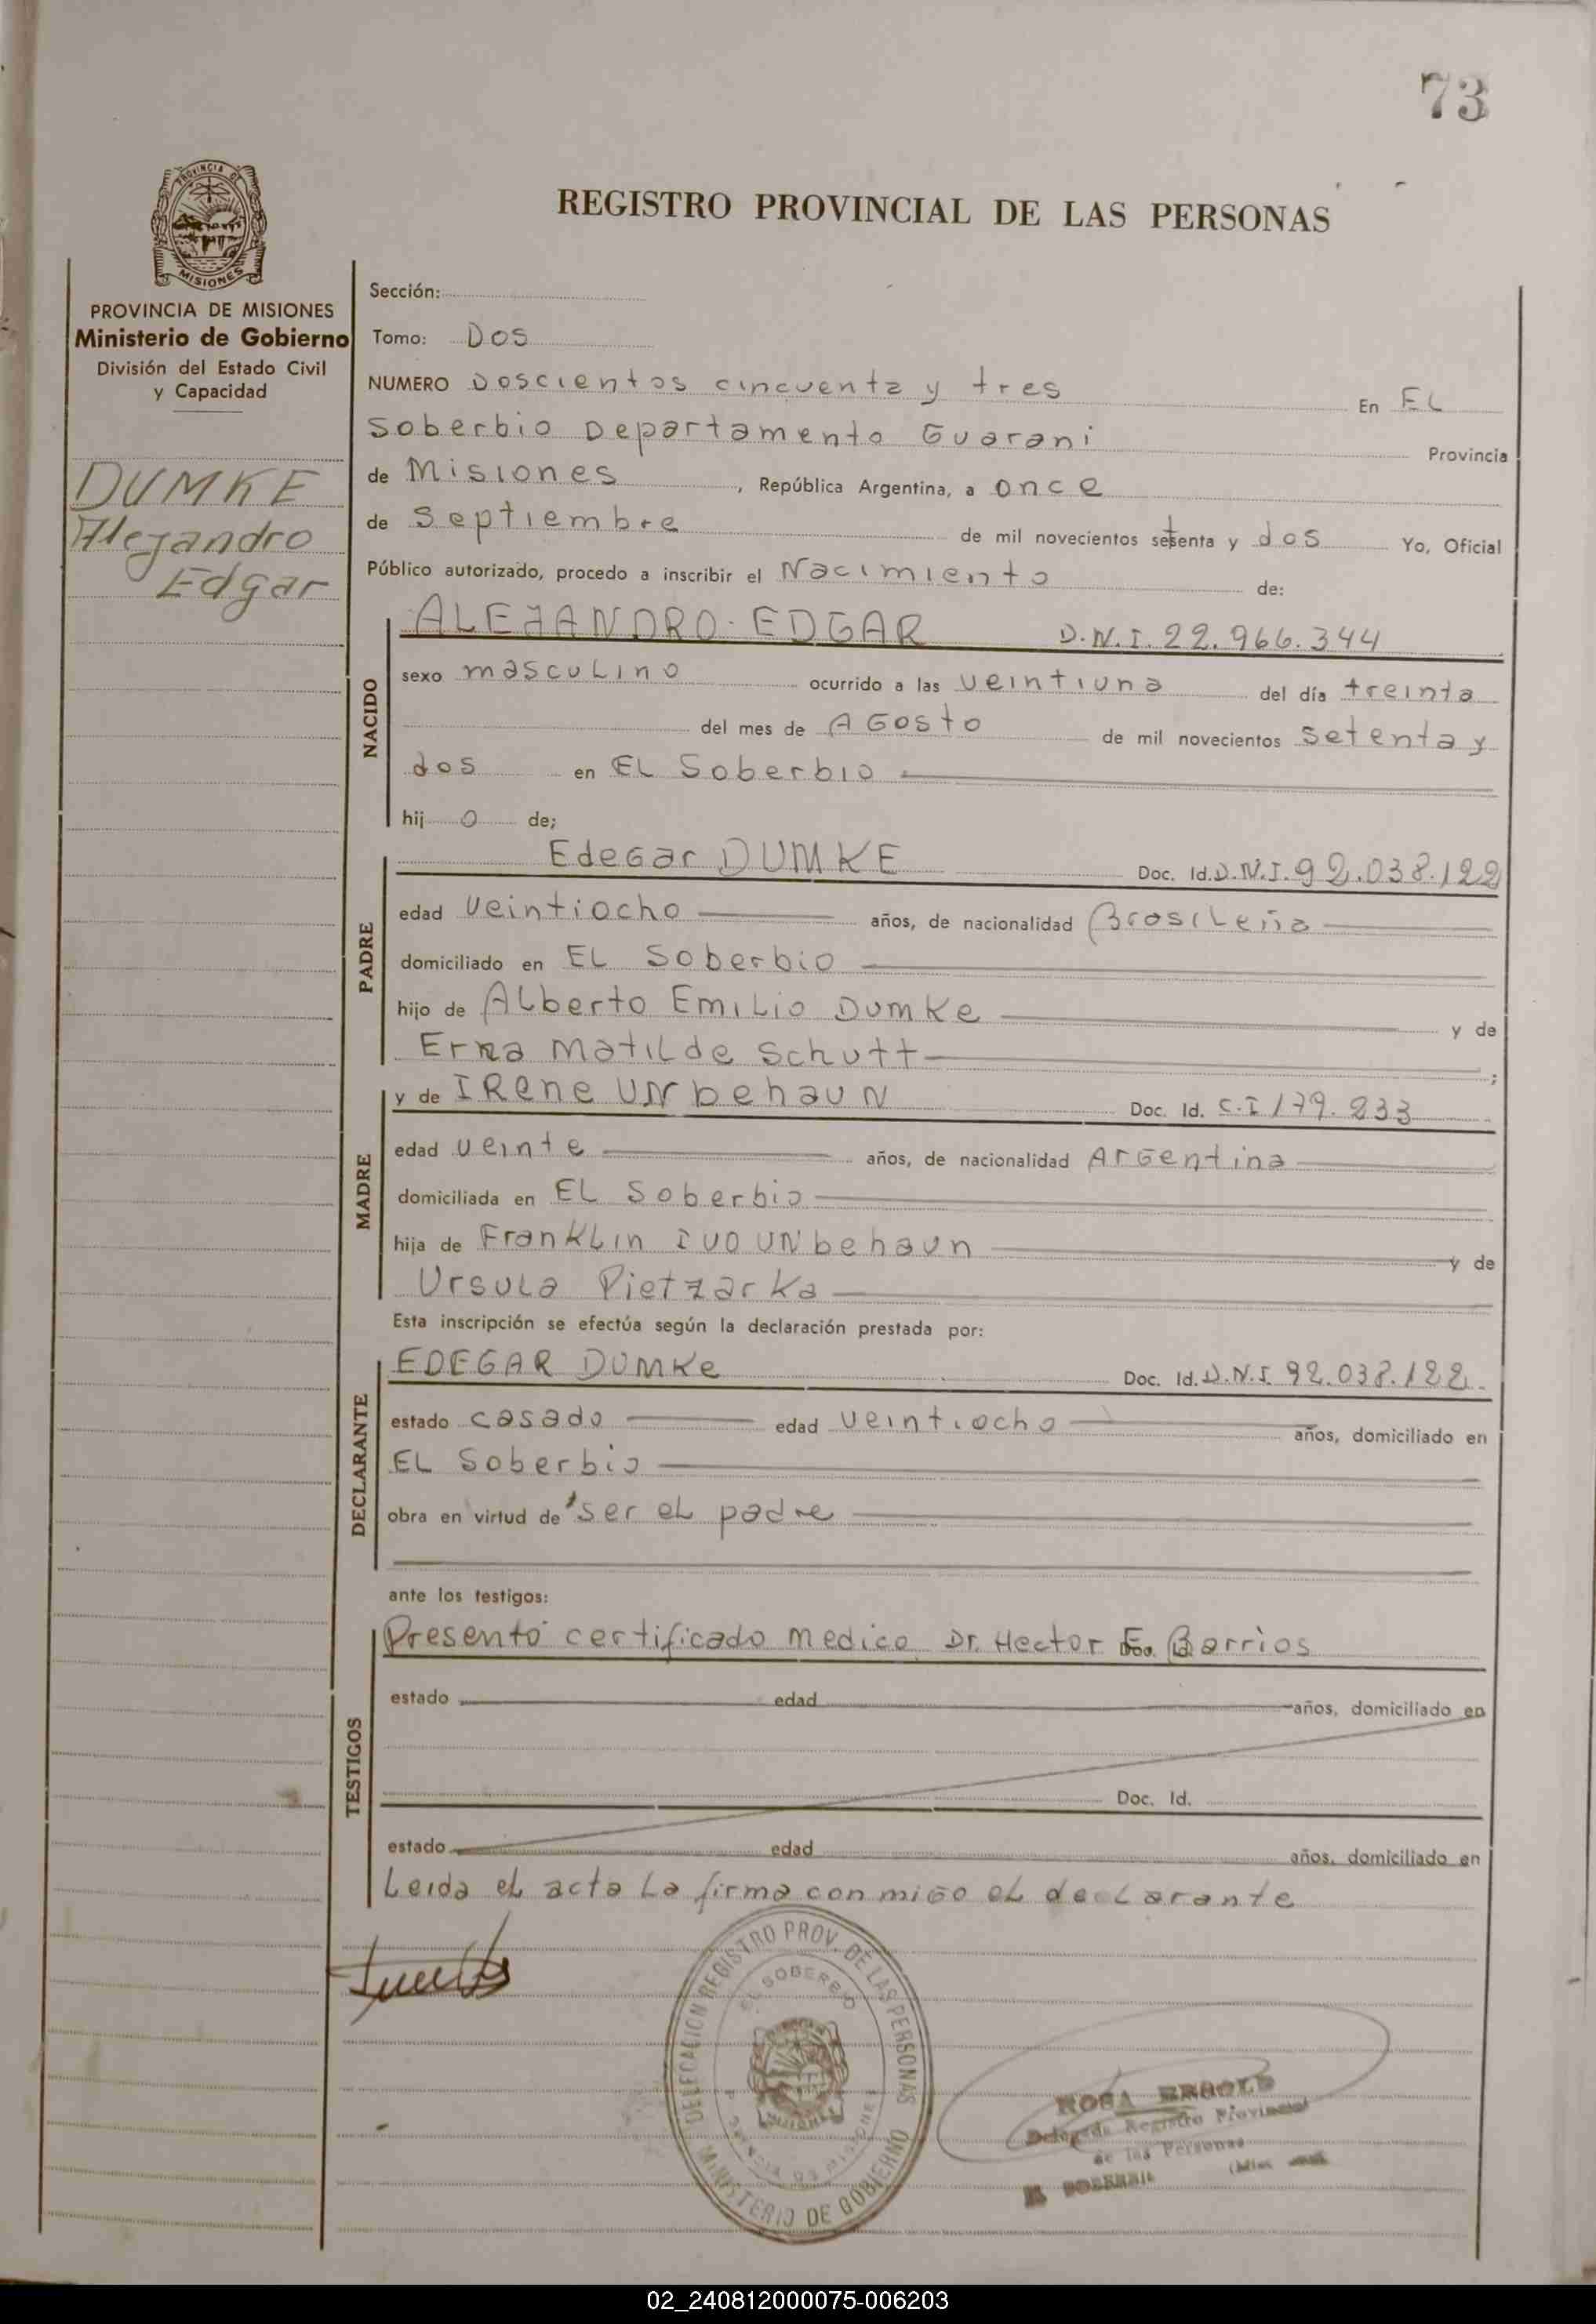 73
PROVINCIA DE
MISIONES
REGISTRO PROVINCIAL DE LAS PERSONAS
PROVINCIA DE MISIONES
Ministerio de Gobierno
División del Estado Civil
y Capacidad
DUMKE
Alejandro
Edgar
Sección:
Tomo: Dos
NUMERO Doscientos cincuenta y tres En EL
Soberbio Departamento Guarani Provincia
de Misiones, República Argentina, a once
de septiembre de mil novecientos setenta y dos Yo, Oficial
Público autorizado, procedo a inscribir el Nacimiento de:
NACIDO
ALEJANDRO EDGAR D.N.I. 22.966.344
sexo masculino ocurrido a las veintiuna del día treinta
del mes de AGosto de mil novecientos setenta y
dos en EL Soberbio
hijo de;
PADRE
EdeGar DUMKE Doc. Id. D.N.I. 92.038.122
edad veintiocho años, de nacionalidad Brasileña
domiciliado en EL Soberbio
hijo de ALberto EmiLio Dumke y de
Erna Matilde Schutt;
MADRE
y de IRene UNbehauN Doc. Id. C.I 179.233
edad veinte años, de nacionalidad ArGentina
domiciliada en EL Soberbio
hija de FranKLin Ivo UNbehaun y de
Ursula Pietzarka
Esta inscripción se efectúa según la declaración prestada por:
DECLARANTE
EDEGAR DUMKe Doc. Id. D.N.I. 92.038.122.
estado casado edad veintiocho años, domiciliado en
EL Soberbio
obra en virtud de ser el padre
ante los testigos:
TESTIGOS
Presentó certificado medico Dr. Hector E. Barrios
estado edad años, domiciliado en
Doc. Id.
estado edad años, domiciliado en
Leida el acta La firma con miGo el decLarante
DELEGACION REGISTRO PROV. DE LAS PERSONAS
EL SOBERBIO
MISIONES
PROVINCIA DE MISIONES
MINISTERIO DE GOBIERNO
ROSA
Delegada Registro Provincial
de las Personas
EL SOBERBIO
02_240812000075-006203